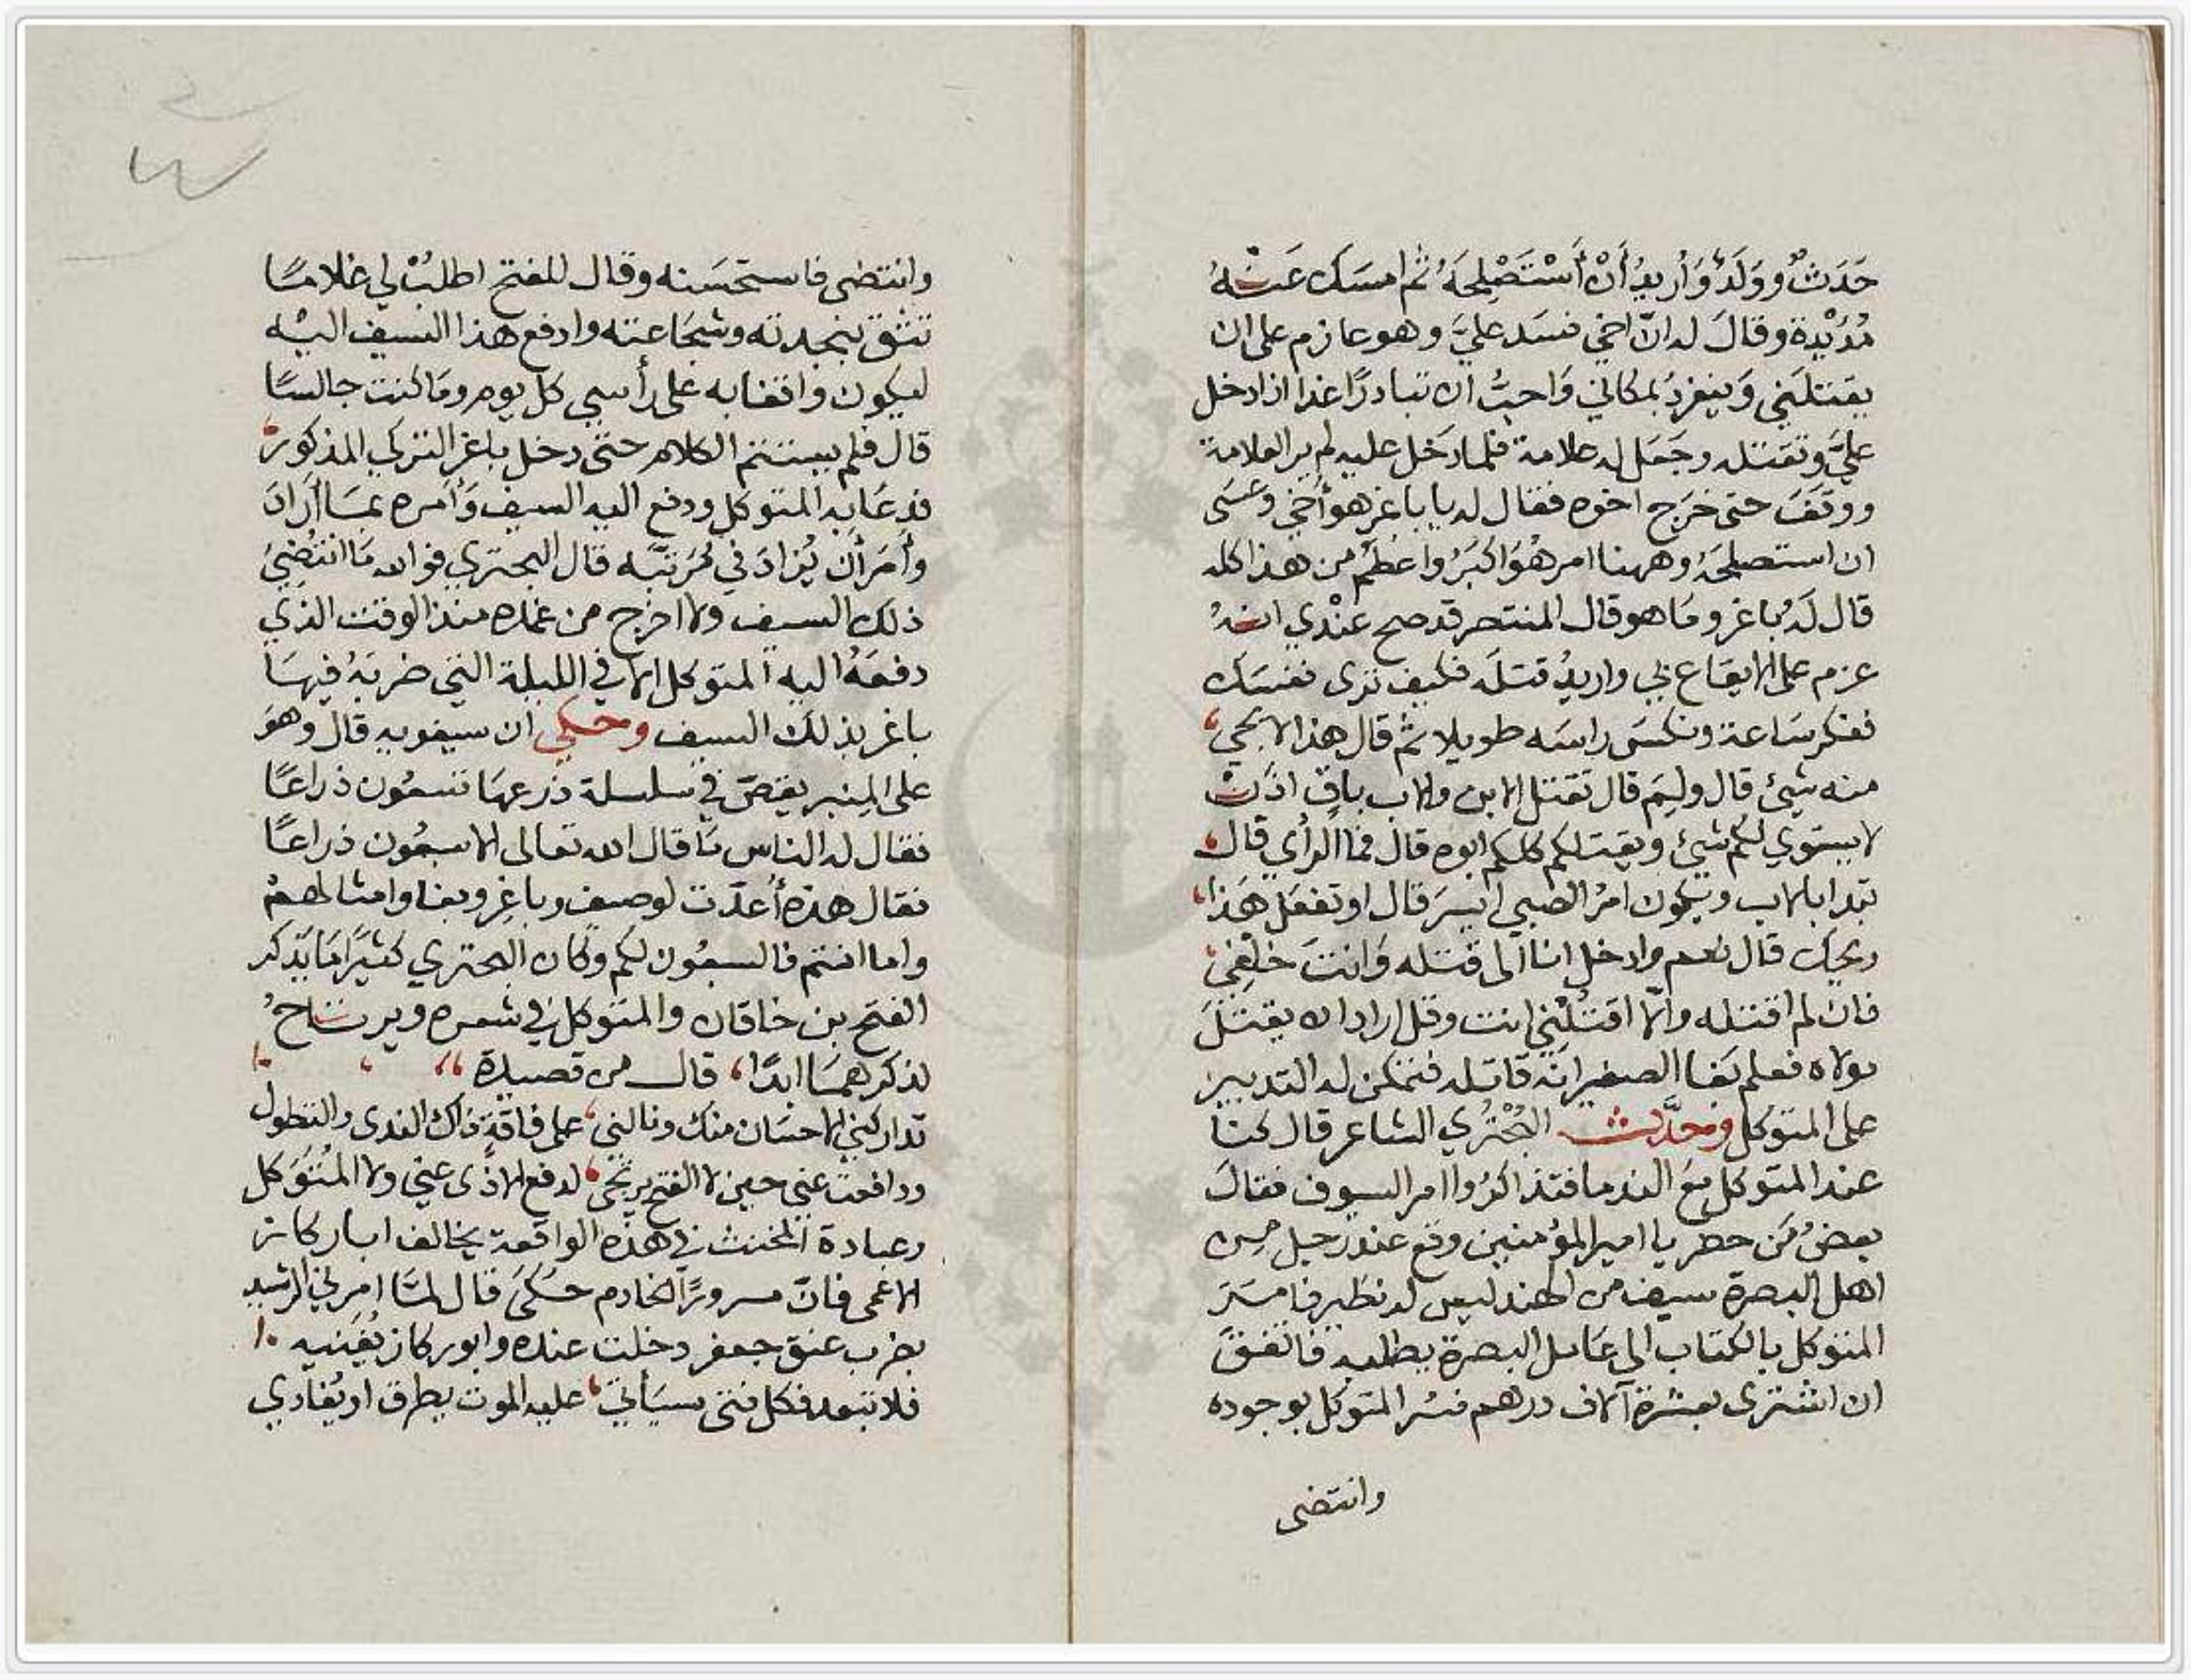 حَدَثٌ ووَلَدٌ وَأُريدُ أَنْ أَسْتَصْلِحَهُ ثم امسَك عَنْهُ
مُدَيْدة وقالَ له انّ اخي فسَد عليَّ وهو عازم على ان
يقتلَني وَينفردُ بمكاني وَاحبُّ ان تبادرًا غدا اذا دخل
عليَّ وتقتله وجَعَل له علامة فلما دَخل عليه لم ير العلامة
ووقفَ حتى خرَج اخوه فقال له يا باغر هو أخي وعسَى
ان استصلحَهُ وههنا امر هُوَ اكبَرُ واعظَم من هذا كله
قال لَهُ باغر ومَا هو قال المنتصر قد صح عنْدي انهُ
عزم على الايقاع بي واريدُ قتلَه فكيف ترى نفسَك
ففكر سَاعة ونكسَ راسَه طويلا ثم قال هذا لا يجي
منه شيئ قال ولِيَم قال تقتل الابن والاب باقٍ اذًا
لا يستوي لكم شيئ ويقتلكم كلكم ابوه قال فما الرأي قال
تبدا بالاب ويكون امرُ الصبي ايسَر قال اوتفعَل هَذا
ويحك قال نعم وادخل انا الى قتله وَانت خلْفي
فان لم اقتله والّا اقتُلْني انت وقل اراد ان يقتلَ
مولاه فعلم بَغا الصغير انّه قاتله فتمكن له التدبير
على المتوكل وحدَّث البُحْتُري الشاعر قال كنا
عند المتوكل مَع الندما فتذاكرُوا امر السيوف فقالَ
بعضُ مَن حضر يا امير المؤمنين وقع عند رجل من
اهل البصرة سيف من الهند ليس له نظير فامَرَ
المتوكل بالكتاب الى عَامل البصرة يطلبه فاتفقَ
ان اشترى بعشرة آلاف درهم فسُر المتوكل بوجوده
وانتضى
وانتضى فاستحسَنه وقال للفتح اطلبْ لي غلامًا
تثق بنجدته وشجَاعته وادفع هذا السيف اليْه
ليكون واقفا به على رأسي كل يوم ومَا كنت جالسًا
قال فلم يستتم الكلام حتى دخل باغر التركي المذكور
فدعَا به المتوكل ودفع اليه السيف وَأمره بمَا ارَادَ
وأمَر أن يُزادَ في مُرَتبَّه قال البحتري فوالله مَا انتُضِيَ
ذلك السيف ولا اخرج من غمده منذ الوقت الذي
دفعَهُ اليه المتوكل الا في الليلة التي ضربَهُ فيهَا
باغر بذلك السيف وحكي ان سيفويه قال وهوَ
على المِنبر يقصّ في سلسلة ذرعهَا تسعُون ذراعًا
فقال له الناس مَا قال الله تعالى الا سبعُون ذراعًا
فقال هذه أُعدّت لوصيف وباغِر وبغا وامثالهمْ
واما انتم فالسبعُون لكم وكان البحتري كثيرًا مَا يَذكر
الفتح بن خاقان والمتوكل في شعره ويرتاحُ
لذكرهمَا ابدًا، قال من قصيدة
تداركني الاحسَان منك ونالني، على فاقةٍ ذاك الندى والتطول
ودافعتَ عني حين لا الفتح يرتجى، لدفع الاذَى عني ولا المُتوَكل
وعبادة المخنث في هذه الواقعة يخالف ابا ركاز
الاعمى فانّ مسرورًا الخادم حَكى قال لمّا امرني الرشيد
بضرب عنق جعفر دخلت عنده وابو ركاز يُغنيه
فلا تبعد فكل فتى سيَأتي، عليه الموت يطرق او يُغادي